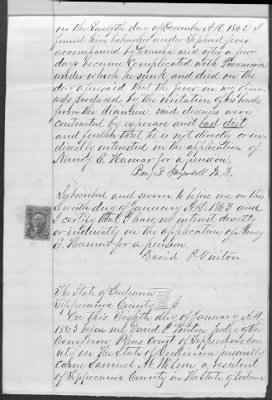 on the Twelfth day of December A.D. 1862 I
found him laboring under Typhoid fever
accompanied by Diarrhea and after a few
days became Complicated with Pneumonia
under which he sunk and died on the
day aforesaid that the fever on my opinion
was produced by the irritation of his bowels
from the diarrhea, said diseases were
contracted by exposure and bad diet
and further that he is not directly or in
directly interested in the application of
Nancy E. for a pension.
Benj. F. M.D.
Subscribed and sworn to before me on this
day of January A.D. 1863 and
I certify that I have no interest directly
or indirectly in the application of Nancy
E. for a pension.
David P. Vinton
The State of Indiana
Tippecanoe County
On this Eighth day of January A.D.
1863 before me David P. Vinton Judge of the
Common Pleas Court of Tippecanoe Cou
nty in The State of Indiana personally
came Samuel M. a resident
of Tippecanoe County in the State of Indiana